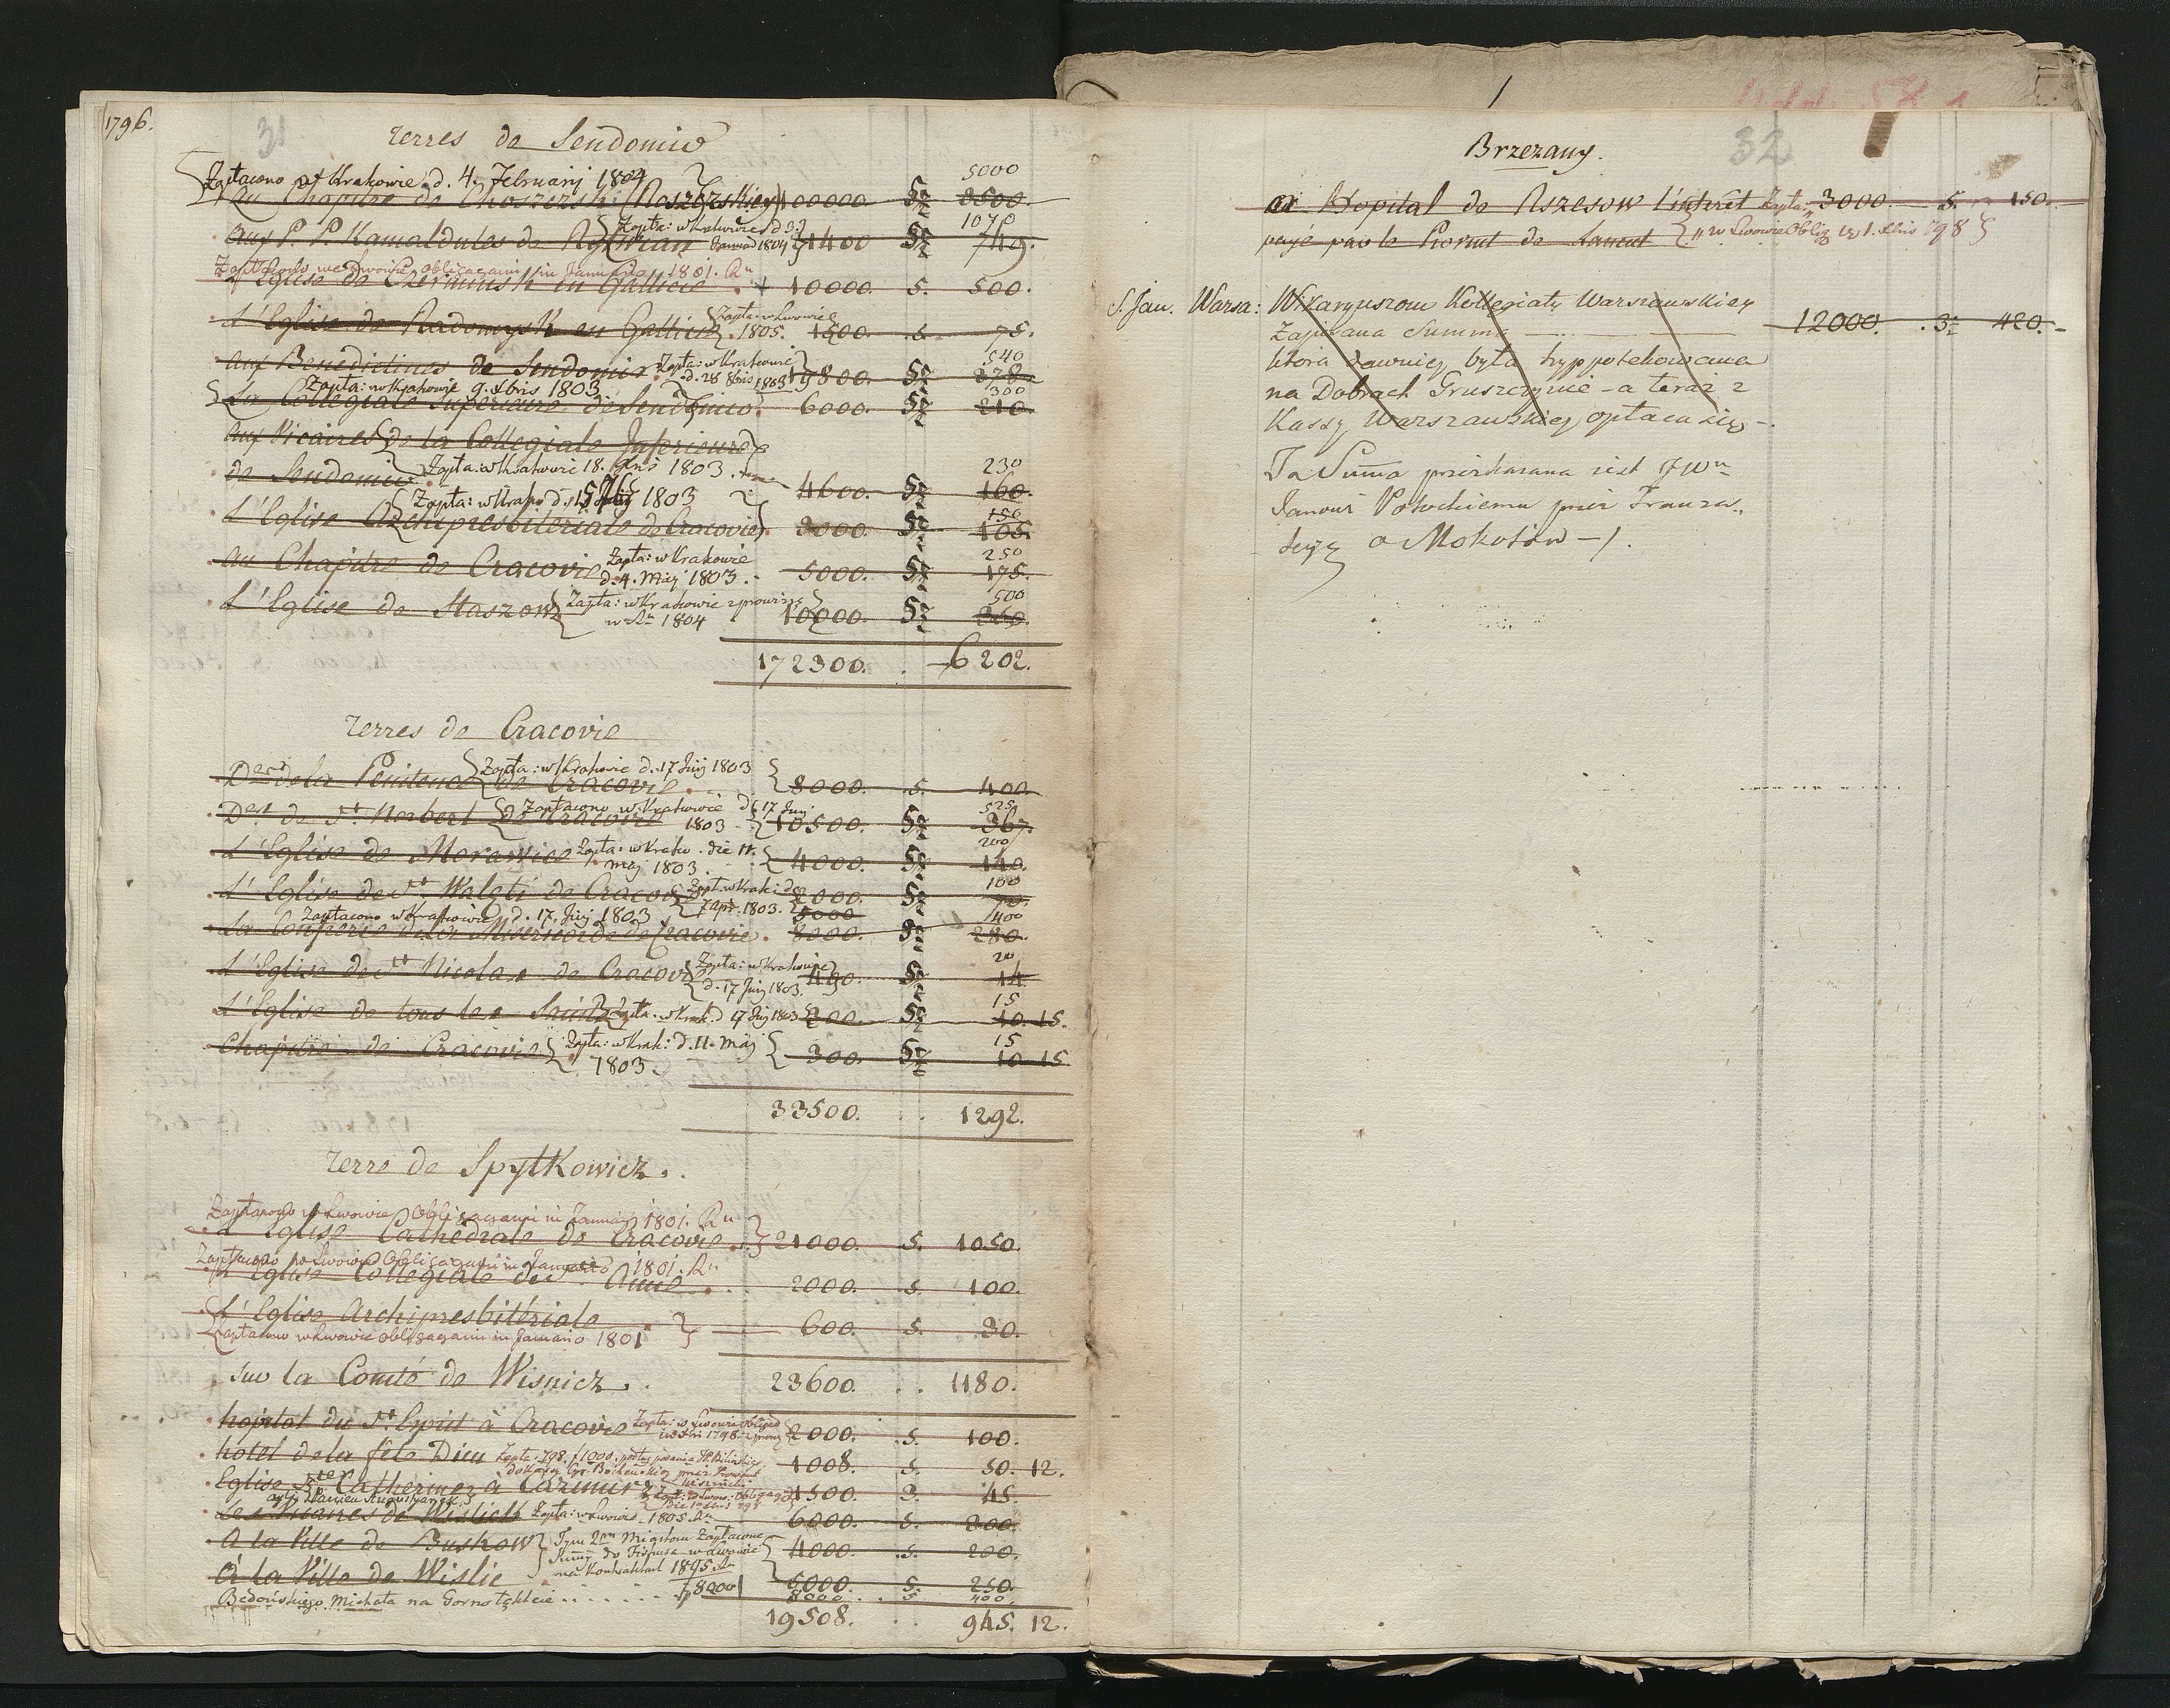 1796.
31
Terres de Sendomir
Zapłacono w Krakowie d. 4. Februarij 1804
5000
Au Chapitre de 100000. 5 3500.
1070
Aux P. P. Kamaldules de Rytwian Zapła: w Krakowie d 3 Januar 1804 21400 5 749.
Zapłacono we Lwowie obligacjami in Januario 1801. Rn
L'Eglise de Czerminsk en Gallicie + 10000. 5. 500.
L'Eglise de Radomysk en Gallicie Zapła: w Lwowie 1805. 1500. 5. 75.
540
Aux Benedictines de Sendomir Zapła: w Krakowie d. 28 8bris 1803 10800. 5 378.
Zapła: w Krakowie 9. xbris 1803
300
La Collegiate Superieure de Sendomir 6000. 5 210.
Aux Vicaires de la Collegiate Inferieure
de Sendomir Zapła: w Krakowie 18. 1803
230
4600. 5 160.
Zapła: w Krako d. 15 1803
150
L'Eglise Archipresbiteriale de Cracovie 3000. 5 105.
250
Au Chapitre de Cracovie Zapła: w Krakowie d. 4. Maij 1803. 5000. 5 175.
500
L'Eglise de Staszow Zapła: w Krakowie z prowizją w Ru 1804 10000. 5 350.
172300. . 6202.
Terres de Cracovie
Des de la Penitence de Cracovie Zapła: w Krakowie d. 17 Junij 1803 8000. 5. 400.
525
Des de St Norbert de Cracovie Zapłacono w Krakowie d 17 Junj 1803 10500. 5 367.
200
L'Eglise de Morawice Zapła: w Krako. die 11. Maj 1803. 4000. 5 140.
100
L'Eglise de St Walęti de Cracovie Zapł. w Krak: d 7 Apr. 1803. 2000. 5 70.
Zapłacono w Krakowie d. 17. Junij 1803
5000
400
La Confrerie de la Misericorde de Cracovie. 8000. 5 280.
20
L'Eglise de St Nicolas de Cracovie Zapła: w Krakowie d. 17 Junij 1803. 400. 5 14.
15
L'Eglise de tous les Saints Zapła. w Krak. d 17 Junij 1803 300. 5 10. 15.
15
Chapitre de Cracovie Zapła: w Krak: d. 11. Maij 1803. 300. 5 10 15
33500. . . 1292.
Terre de Spytkowicz.
Zapłacono w Lwowie Obligacjami in Januarj 1801. Rn
L'Eglise Cathedrale de Cracovie 21000. 5. 1050.
Zapłacono w Lwowie Obligacjami in Januario 1801. Rn
L'Eglise Collegiale de Anne 2000. 5. 100.
L'Eglise Archipresbitériale
Zapłacono w Lwowie obligacjami in Januario 1801 600. 5. 30.
Sur la Comté de Wisnicz. 23600. . . 1180.
hopital du St Esprit à Cracovie Zapła: w Lwowie obligac in xbri 1798 2000. 5. 100.
hotel de la fête Dieu 1008. 5. 50. 12.
Eglise Ste Catherine à Cazimir 1500. 3. 45.
Les Vicaires de Wislick Zapła: w Lwowie 1805 Ru 6000. 5. 300.
A la Ville de Buskow Tym 2om Miastom Zapłacone 4000. 5. 200.
Summy do Fiskusa w Lwowie
na Kontraktach 1805 Ru
à la Ville de Wislic 5000. 5. 250.
Bedońskiego Michała na Gorno 8000 8000 5 400.
19508. . . 945. 12.
1
32
Brzezany.
à Hopital de Rszesow l'interêt Zapła: 3000. 5. 150.
payé par le de Lancut w Lwowie Oblig 1. xbris 798
S. Jan. Warsa: Wikaryuszom Kollegiaty Warszawskiey
Zapisana Summa 12000. . 3 420.
ktora dawniey była hyppotekowana
na Dobrach Gruszczynie - a teraz z
Kassy Warszawskiey opłaca się -
Ta Suma przekazana jest JWu
Janowi Potockiemu przez Tranza
kcyę o Mokotów -/.